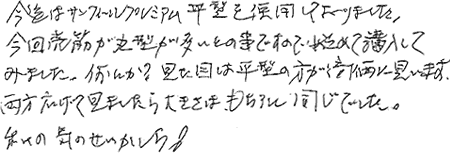 今迄はサンフィールプレミアム平型を使用しておりました。
今回売筋が丸型が多いとの事ですので初めて購入して
みました。何んか？見た目は平型の方が倍価に思います。
両方広げて見ましたら大きさはもちろん同じでした。
私の気のせいかしら